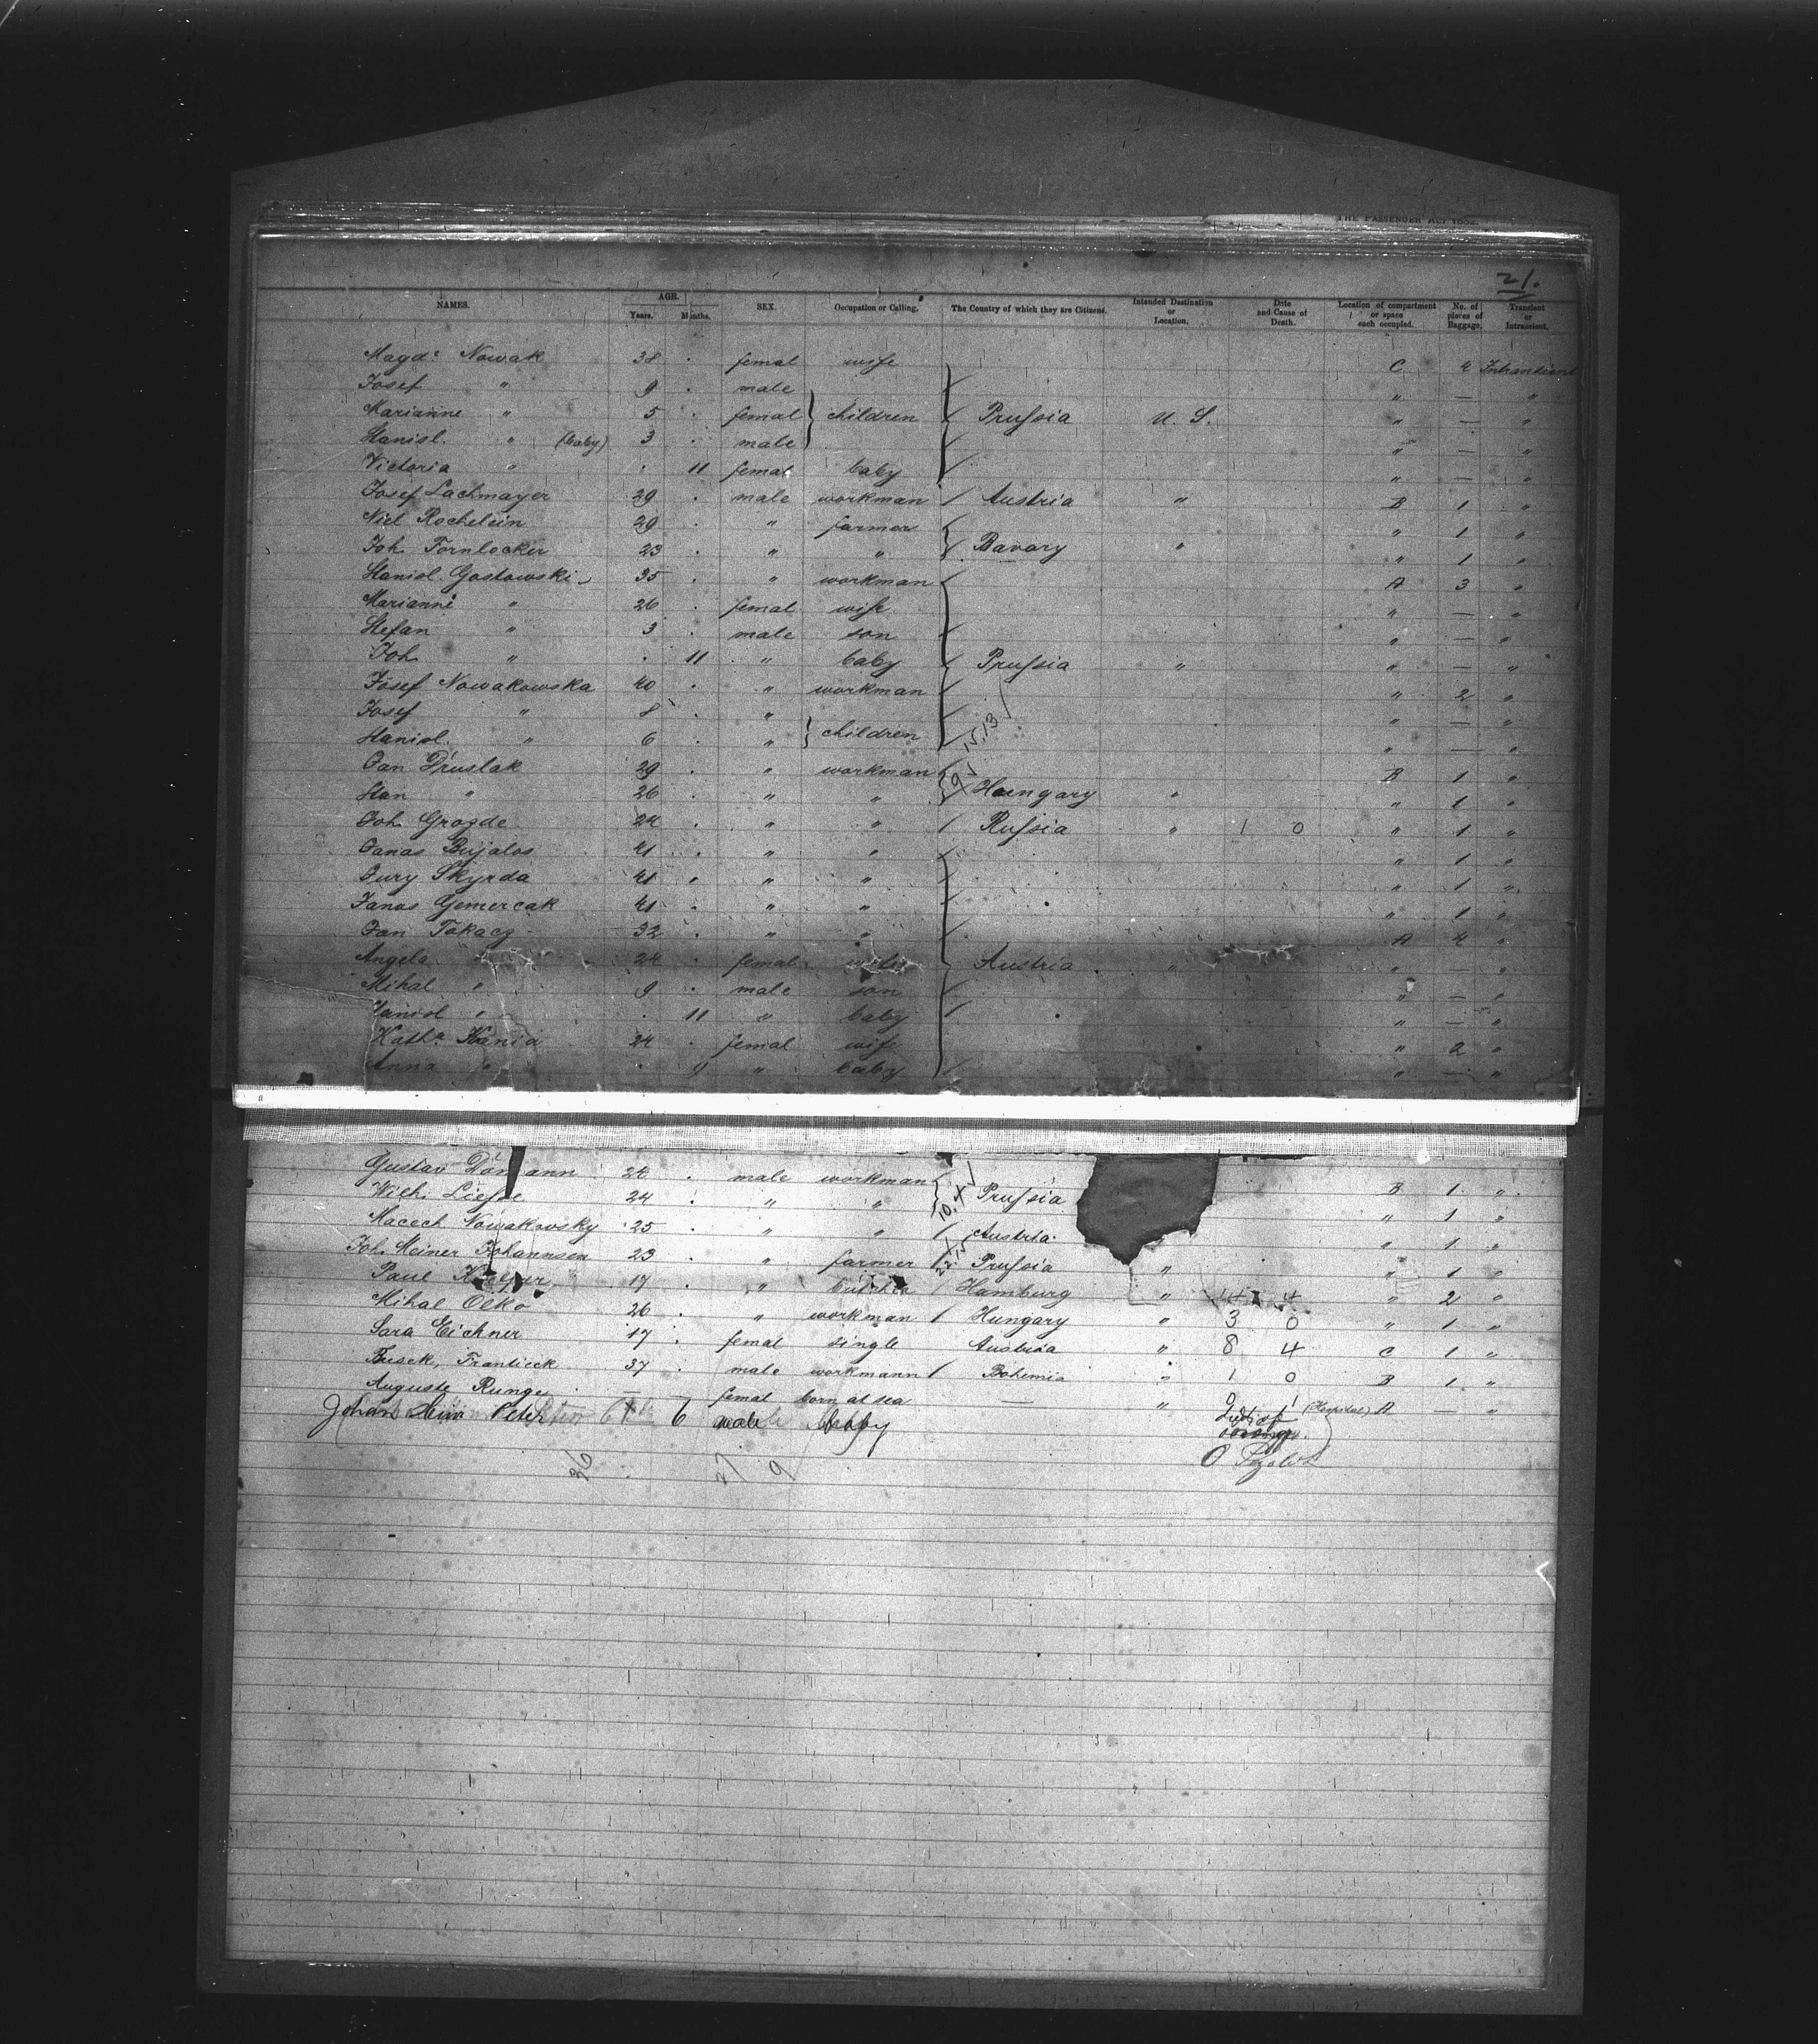 THE PASSENGER ACT 1882
21.
NAMES. AGE. Years. Months. SEX. Occupation or Calling. The Country of which they are Citizens. Intended Destination or Location. Date and Cause of Death. Location of compartment or space each occupied. No. of pieces of Baggage. Transient or Intransient.
Magd.ᵃ Nowak 38 . femal wife C 4 Intransient
Josef " 9 . male " — "
Marianne " 5 . femal children Prussia U. S. " — "
Stanisl. " (baby) 3 . male " — "
Victoria " . 11 femal baby " — "
Josef Lachmayer 29 . male workman Austria " B 1 "
Niel Rochelein 29 . " farmer " 1 "
Joh. Fornlocker 23 . " " Bavary " " 1 "
Stanisl. Gostowski 35 . " workman A 3 "
Marianne " 26 . femal wife " — "
Stefan " 3 . male son " — "
Joh. " . 11 " baby Prussia " " — "
Josef Nowakowska 40 . " workman " 2 "
Josef " 8 . " " — "
Stanisl. " 6 . " children 15.13 " — "
Jan Druslak 29 . " workman B 1 "
Stan " 26 . " " Hungary " " 1 "
Joh. Grogde 24 . " " Russia " 1 0 " 1 "
Janas Bujalos 41 . " " " 1 "
Jury Skyrda 41 . " " " 1 "
Janos Gemercak 41 . " " " 1 "
Jan Takacz 32 . " " A 4 "
Angela " 24 . femal wife Austria " " — "
Mihal " 9 . male son " — "
" . 11 " baby " — "
Kath.ᵃ Kania 24 . femal wife " 2 "
Anna " . 9 " baby " — "
Gustav 24 . male workman B 1 "
Wilh. 24 . " " 10.4 Prussia " 1 "
Macech Nowakowsky 25 . " " Austria " 1 "
Joh. Meiner Johannsen 23 . " farmer Prussia " " 1 "
Paul 17 . " Hamburg " 14 4 " 2 "
Mihal Olko 26 . " workman Hungary " 3 0 " 1 "
Sara Eichner 17 . femal single Austria " 8 4 C 1 "
Busek, Frantisek 37 . male workmann Bohemia " 1 0 B 1 "
Auguste Runge — — femal born at sea — " (Hospital) A — "
Johan Hein Peter 6 male baby
36 27 9